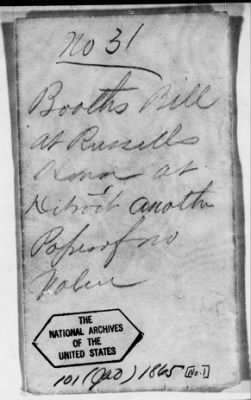 No 31
Booths Bill
at Russells
House at
Detroit another
Paper of no
Value
THE
NATIONAL ARCHIVES
OF THE
UNITED STATES
101 (JAO) 1865 No. 1